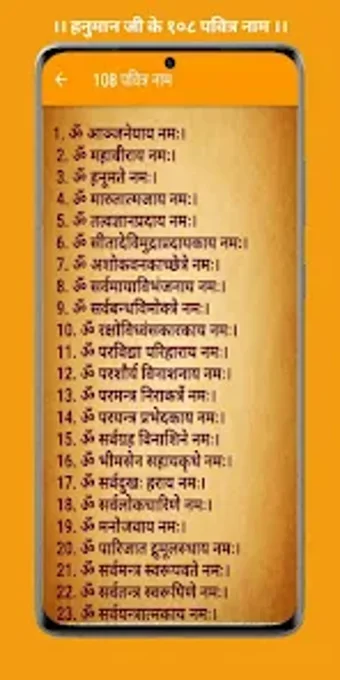 ।। हनुमान जी के १०८ पवित्र नाम ।।
108 पवित्र नाम
1. ॐ आञ्जनेयाय नमः।
2. ॐ महावीराय नमः।
3. ॐ हनूमते नमः।
4. ॐ मारुतात्मजाय नमः।
5. ॐ तत्वज्ञानप्रदाय नमः।
6. ॐ सीतादेविमुद्राप्रदायकाय नमः।
7. ॐ अशोकवनकाच्छेत्रे नमः।
8. ॐ सर्वमायाविभंजनाय नमः।
9. ॐ सर्वबन्धविमोक्त्रे नमः।
10. ॐ रक्षोविध्वंसकारकाय नमः।
11. ॐ परविद्या परिहाराय नमः।
12. ॐ परशौर्य विनाशनाय नमः।
13. ॐ परमन्त्र निराकर्त्रे नमः।
14. ॐ परयन्त्र प्रभेदकाय नमः।
15. ॐ सर्वग्रह विनाशिने नमः।
16. ॐ भीमसेन सहायकृथे नमः।
17. ॐ सर्वदुखः हराय नमः।
18. ॐ सर्वलोकचारिणे नमः।
19. ॐ मनोजवाय नमः।
20. ॐ पारिजात द्रुमूलस्थाय नमः।
21. ॐ सर्वमन्त्र स्वरूपवते नमः।
22. ॐ सर्वतन्त्र स्वरूपिणे नमः।
23. ॐ सर्वयन्त्रात्मकाय नमः।